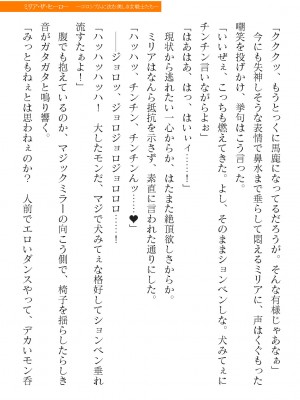 「ククク～ッ、もうとっくに馬鹿になってるだろうが。そんな有様じゃあなぁ」
今にも失神しそうな表情で鼻水まで垂らして悶えるミリアに、声はくぐもった
嘲笑を投げかけ、挙句はこう言った。
「いいぜぇ、こっちも燃えてきた。よし、そのままションベンしな。犬みてぇに
チンチン言いながらよぉ」
「はぁはあ、はっ、はいィ……！」
現状から逃れたい一心からか、はたまた絶頂欲しさからか。
ミリアはなんら抵抗を示さず、素直に言われた通りにした。
「はへっ、チンチン、チンチンんッ……♥」
――ジョロッ、ジョロジョロジョロロロ……！
「ハッハッハッハ！　大したモンだ、マジで犬みてぇな格好してションベン垂れ
流すたぁよ！」
腹でも抱えているのか、マジックミラーの向こう側で、椅子を揺らしたらしき
音がガタガタと鳴り響く。
「みっともねぇとは思わねぇのか？　人前でエロいダンスやって、デカいモン呑